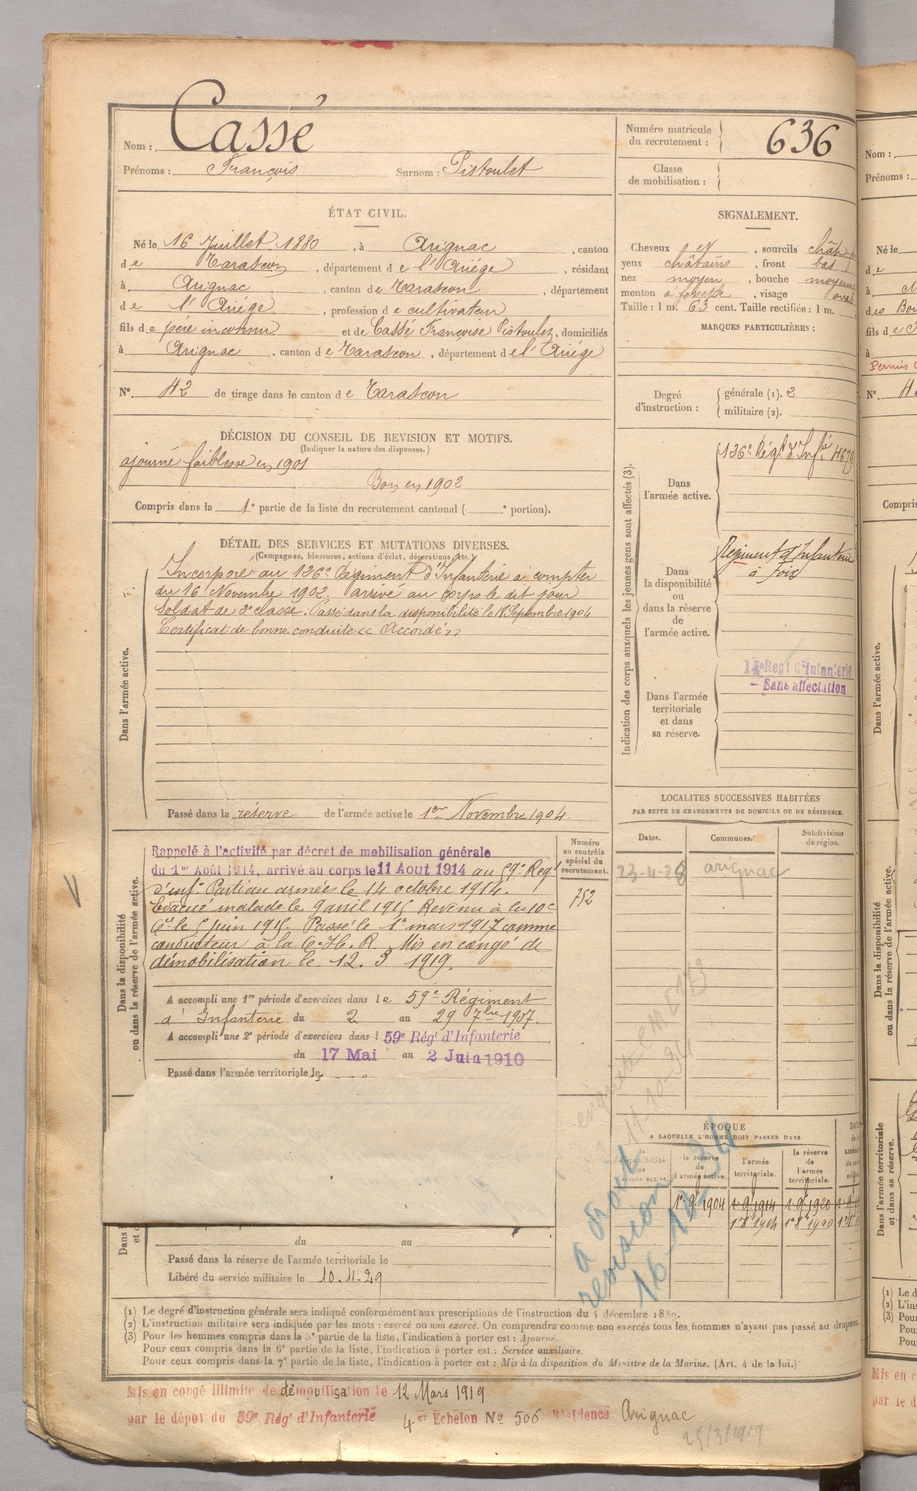 Nom : Cassé
Prénoms : François Surnom : Pistoulet
Numéro matricule du recrutement : 636
Classe de mobilisation :
ÉTAT CIVIL.
Né le 16 Juillet 1880, à Arignac, canton
de Tarascon, département de l'Ariége, résidant
à Arignac, canton de Tarascon, département
de l'Ariége, profession de cultivateur
fils de père inconnu et de Cassé Françoise Pistoulet, domiciliés
à Arignac, canton de Tarascon, département de l'Ariége
N° 42 de tirage dans le canton de Tarascon
SIGNALEMENT.
Cheveux, sourcils chât
yeux châtains, front bas
nez moyen, bouche moyenne
menton à fossette, visage oval
Taille : 1 m. 63 cent. Taille rectifiée : 1 m.
MARQUES PARTICULIÈRES :
Degré d'instruction : générale (1). 2
militaire (2).
DÉCISION DU CONSEIL DE REVISION ET MOTIFS.
(Indiquer la nature des dispenses.)
ajourné faiblesse en 1901
Bon en 1902
Compris dans la 1e partie de la liste du recrutement cantonal ( e portion).
DÉTAIL DES SERVICES ET MUTATIONS DIVERSES.
(Campagnes, blessures, actions d'éclat, décorations, etc.)
Dans l'armée active.
Incorporé au 126e Régiment d'Infanterie à compter
du 16 Novembre 1902, arrivé au corps le dit jour
Soldat de 2e classe. Passé dans la disponibilité le 18 Septembre 1904
Certificat de bonne conduite « Accordé »
Passé dans la réserve de l'armée active le 1er Novembre 1904
Indication des corps auxquels les jeunes gens sont affectés (3).
Dans l'armée active.
126e Régt d'Infie
Dans la disponibilité ou dans la réserve de l'armée active.
Régiment d'Infanterie
à Foix
Dans l'armée territoriale et dans sa réserve.
Regt d'Infanterie
- Sans affectation
LOCALITES SUCCESSIVES HABITÉES
PAR SUITE DE CHANGEMENTS DE DOMICILE OU DE RÉSIDENCE.
Dates. Communes. Subdivisions de région.
23-4-28 arignac
Dans la disponibilité ou dans la réserve de l'armée active.
Numéro au contrôle spécial du recrutement.
Rappelé à l'activité par décret de mobilisation générale
du 1er Août 1914, arrivé au corps le 11 Aout 1914 au 59e Regt
d'infie Parti au armée le 14 octobre 1914.
Evacué malade le 9 avril 1915 Revenu à la 10e
Cie le 5 juin 1915. Passé le 1er mars 1917 comme
conducteur à la C. H. R. Mis en congé de
démobilisation le 12. 3 1919.
A accompli une 1re période d'exercices dans le 59e Régiment
d'Infanterie du 2 au 29 7bre 1907.
A accompli une 2e période d'exercices dans l 59e Régt d'Infanterie
du 17 Mai au 2 Juin 1910
Passé dans l'armée territoriale le
ÉPOQUE
A LAQUELLE L'HOMME DOIT PASSER DANS
la réserve de l'armée active. l'armée territoriale. la réserve de l'armée territoriale.
1 9 1904 1 9 1914 1 9 1920
à droit
révision
16-10-34
du au
Passé dans la réserve de l'armée territoriale le
Libéré du service militaire le 10.11.29
(1) Le degré d'instruction générale sera indiqué conformément aux prescriptions de l'instruction du 4 décembre 1889.
(2) L'instruction militaire sera indiquée par les mots : exercé ou non exercé. On comprendra comme non exercés tous les hommes n'ayant pas passé au drapeau
(3) Pour les hommes compris dans la 5e partie de la liste, l'indication à porter est : Ajourné.
Pour ceux compris dans la 6e partie de la liste, l'indication à porter est : Service auxiliaire.
Pour ceux compris dans la 7e partie de la liste, l'indication à porter est : Mis à la disposition du Ministre de la Marine. (Art. 4 de la loi.)
Mis en congé illimité de démobilisation le 12 Mars 1919
par le dépôt du 59e Régt d'Infanterie 4er Echelon No 506 Résidence Arignac
25/3/1919